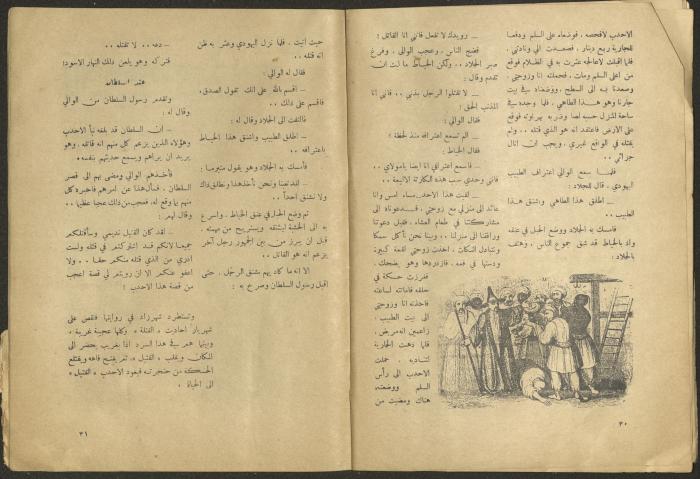 الاحدب لافحصه ، فوضعاه على السلم ودفعا
للجارية ربع دينار ، فصعدت الي ونادتني ،
فلما اقبلت لاعالجه عثرت به في الظلام فوقع
من اعلى السلم ومات . فحملته انا وزوجتي
وصعدنا به الى السطح ، ووضعناه في بيت
جارنا وهو هذا الطاهي ، فلما وجده في
ساحة المنزل حسبه لصا وضربه بهراوته فوقع
على الارض فاعتقد انه هو الذي قتله .. ولم
يقتله في الواقع غيري ، ويجب ان انال
جزائي ..
فلما سمع الوالي اعتراف الطبيب
اليهودي ، قال للجلاد :
ـ اطلق هذا الطاهي واشنق هذا
الطبيب ..
فامسك به الجلاد ووضع الحبل في عنقه
واذ بالخياط قد شق جموع الناس ، وهتف
بالجلاد :
ـ رويدك لا تفعل فاني انا القاتل !
فضج الناس ، وعجب الوالي ، وفرغ
صبر الجلاد .. ولكن الخياط ما لبث ان
تقدم وقال :
ـ لا تقتلوا الرجل بذنبي .. فاني انا
المذنب الحق !
فقال الوالي :
ـ الم تسمع اعترافه منذ لحظة ؟
فقال الخياط :
ـ فاسمع اعترافي انا ايضا يامولاي ..
فاني وحدي سبب هذه الكارثة الاليمة ..
ـ لقيت هذا الاحدب مساء امس وانا
عائد الى منزلي مع زوجتي ، فدعوناه الى
مشاركتنا في طعام العشاء ، فقبل دعوتنا
ورافقنا الى منزلنا .. وبينا نحن نأكل سمكا
ونتبادل النكات ، اخذت زوجتي لقمة كبيرة
ودستها في فمه ، فازدردها وهو يضحك ،
فغرزت حسكة في
حلقه فاماتته لساعته
فاخذته انا وزوجتي
الى بيت الطبيب ،
زاعمين انه مريض ،
فلما ذهبت الجارية
لتناديه ، حملت
الاحدب الى رأس
السلم ووضعته
هناك ومضيت من
٣٠
حيث اتيت . فلما نزل اليهودي وعثر به ظن
انه قتله ..
فقال له الوالي :
ـ اقسم بالله على انك تقول الصدق ،
فاقسم على ذلك ..
فالتفت الى الجلاد وقال له :
ـ اطلق الطبيب واشنق هذا الخياط
باعترافه ..
فأمسك به الجلاد وهو يقول متبرما :
ـ لقد تعبنا ونحن نأخذ هذا ونطلق ذاك
ولا نشنق احداً ..
ثم وضع الحبل في عنق الخياط ، واسرع
به الى الخشبة ليشنقه ويستريح من مهمته ،
قبل ان يبرز من بين الجمهور رجل آخر
يزعم انه هو القاتل ..
الا انه ما كاد يهم بشنق الرجل ، حتى
اقبل رسول السلطان وصرخ به :
ـ دعه .. لا تقتله ..
فتركه وهو يلعن ذلك النهار الاسود !
عند السلطان
وتقدم رسول السلطان من الوالي
وقال له :
ـ ان السلطان قد بلغه نبأ الاحدب
وهؤلاء الذين يزعم كل منهم انه قاتله ، وهو
يريد ان يراهم ويسمع حديثهم بنفسه .
فأخذهم الوالي ومضى بهم الى قصر
السلطان . فسأل هذا عن امرهم فاخبره كل
منهم بما وقع له ، فعجب من ذلك عجبا عظيما ..
وقال لهم :
ـ لقد كان القتيل نديمي وسأقتلكم
جميعا لانكم قد اشتركتم في قتله ولست
ادري من الذي قتله منكم حقا .. ولا
اعفو عنكم الا ان رويتم لي قصة اعجب
من قصة هذا الاحدب !
وتستطرد شهرزاد في روايتها فتقص على
شهريار احاديث « القتلة » وكلها عجيبة غريبة ،
وبينما هم في هذا السرد اذا بغريب يحضر الى
المكان ويقلب « القتيل » ثم يفتح فاه ويقتلع
الحسكة من حنجرته فيعود الاحدب « القتيل »
الى الحياة .
٣١